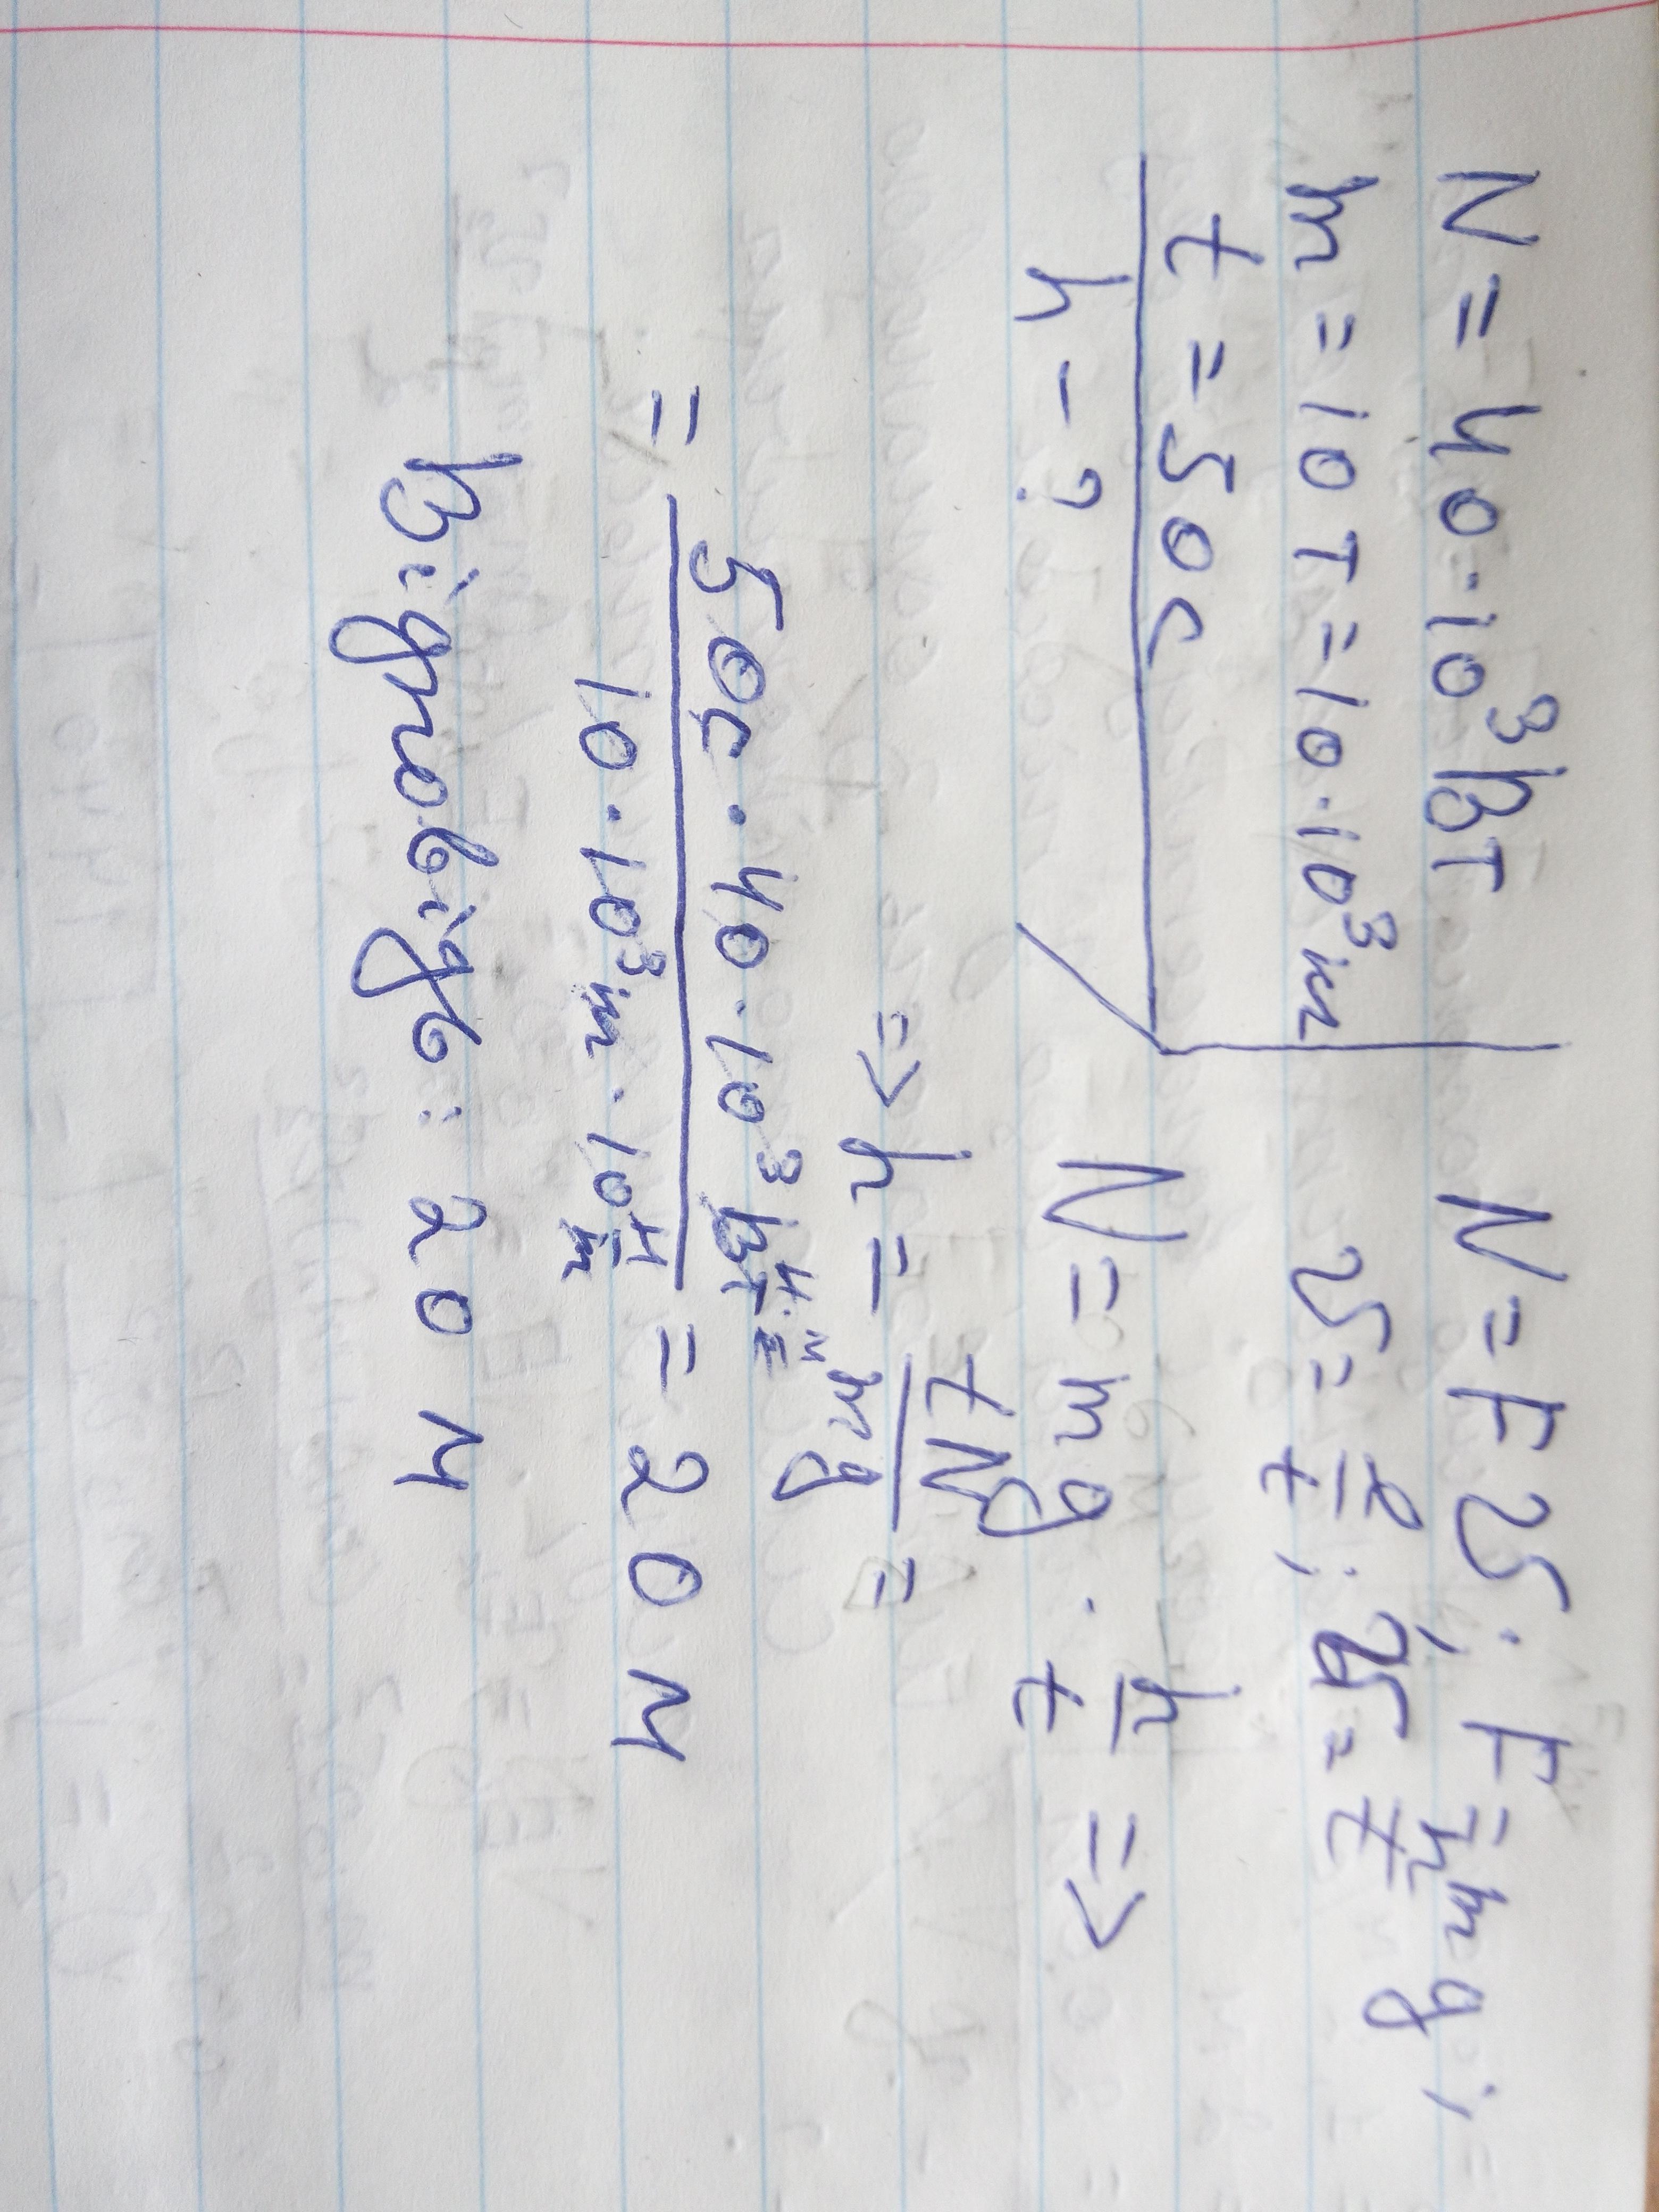 N = 40·10³ Вт
m = 10 т = 10·10³ кг
t = 50 с
h - ?
N = Fv; F = mg;
v = l/t; v = h/t
N = mg · h/t =>
=> h = tN/mg =
= 50 с · 40·10³ / 10·10³ кг · 10 Н/кг = 20 м
Відповідь: 20 м